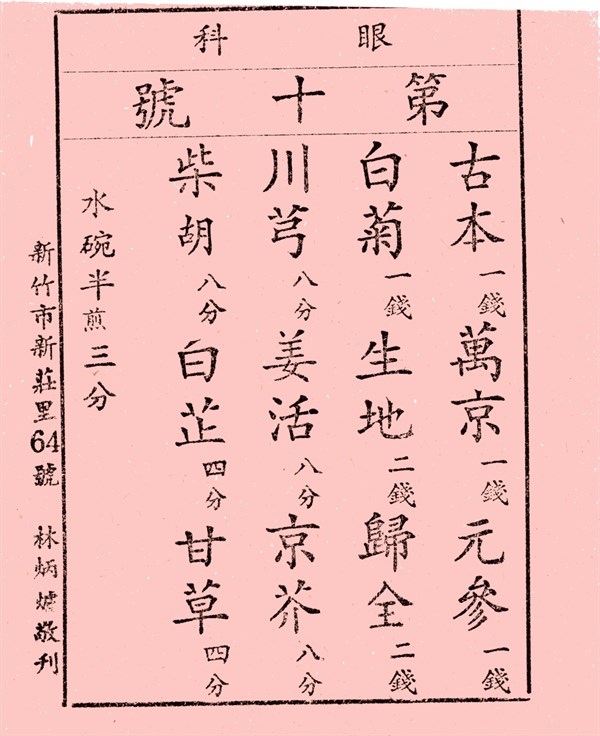 眼科
第十號
古本一錢 萬京一錢 元參一錢
白菊一錢 生地二錢 歸全二錢
川芎八分 姜活八分 京芥八分
柴胡八分 白芷四分 甘草四分
水碗半煎三分
新竹市新莊里64號 林炳爐敬刊